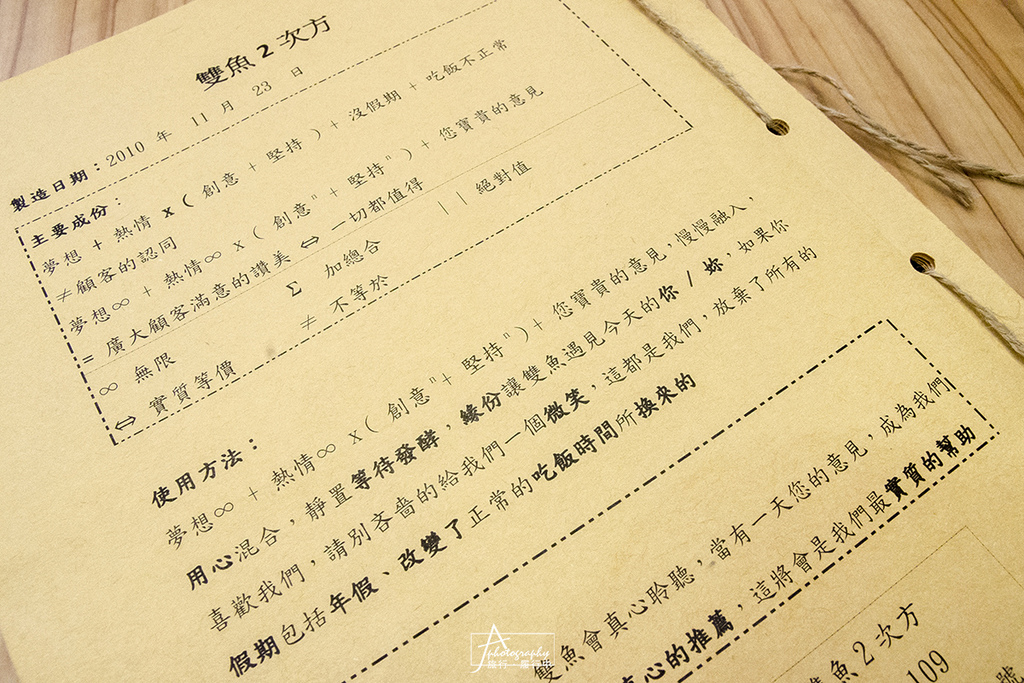 雙魚2次方
製造日期：2010 年 11 月 23 日
主要成份：
夢想 + 熱情 x ( 創意 + 堅持 ) + 沒假期 + 吃飯不正常
≠顧客的認同
夢想∞ + 熱情∞ x ( 創意ⁿ + 堅持ⁿ ) + 您寶貴的意見
= 廣大顧客滿意的讚美 ⇔ 一切都值得
∞ 無限 Σ 加總合 || 絕對值
⇔ 實質等價 ≠ 不等於
使用方法：
夢想∞ + 熱情∞ x ( 創意ⁿ+ 堅持ⁿ)+ 您寶貴的意見，慢慢融入，
用心混合，靜置等待發酵，緣份讓雙魚遇見今天的你 / 妳，如果你
喜歡我們，請別吝嗇的給我們一個微笑，這都是我們，放棄了所有的
假期包括年假、改變了正常的吃飯時間所換來的
雙魚會真心聆聽，當有一天您的意見，成為我們
心的推薦，這將會是我們最實質的幫助
魚2次方
109
號
photography
旅行．